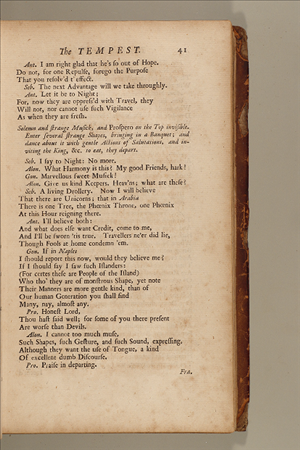 The TEMPEST. 41
Ant. I am right glad that he's so out of Hope.
Do not, for one Repulse, forego the Purpose
That you resolv'd t'effect.
Seb. The next Advantage will we take throughly.
Ant. Let it be to Night;
For, now they are oppress'd with Travel, they
Will not, nor cannot use such Vigilance
As when they are fresh.
Solemn and strange Musick, and Prospero on the Top invisible.
Enter several strange Shapes, bringing in a Banquet; and
dance about it with gentle Actions of Salutations, and in-
viting the King, &c. to eat, they depart.
Seb. I say to Night: No more.
Alon. What Harmony is this? My good Friends, hark!
Gon. Marvellous sweet Musick!
Alon. Give us kind Keepers, Heav'n; what are these?
Seb. A living Drollery. Now I will believe
That there are Unicorns; that in Arabia
There is one Tree, the Phœnix Throne, one Phœnix
At this Hour reigning there.
Ant. I'll believe both:
And what does else want Credit, come to me,
And I'll be sworn 'tis true. Travellers ne'er did lie,
Though Fools at home condemn 'em.
Gon. If in Naples
I should report this now, would they believe me?
If I should say I saw such Islanders:
(For certes these are People of the Island)
Who tho' they are of monstrous Shape, yet note
Their Manners are more gentle kind, than of
Our human Generation you shall find
Many, nay, almost any.
Pro. Honest Lord,
Thou hast said well; for some of you there present
Are worse than Devils.
Alon. I cannot too much muse,
Such Shapes, such Gesture, and such Sound, expressing,
Although they want the use of Tongue, a kind
Of excellent dumb Discourse.
Pro. Praise in departing.
Fra.